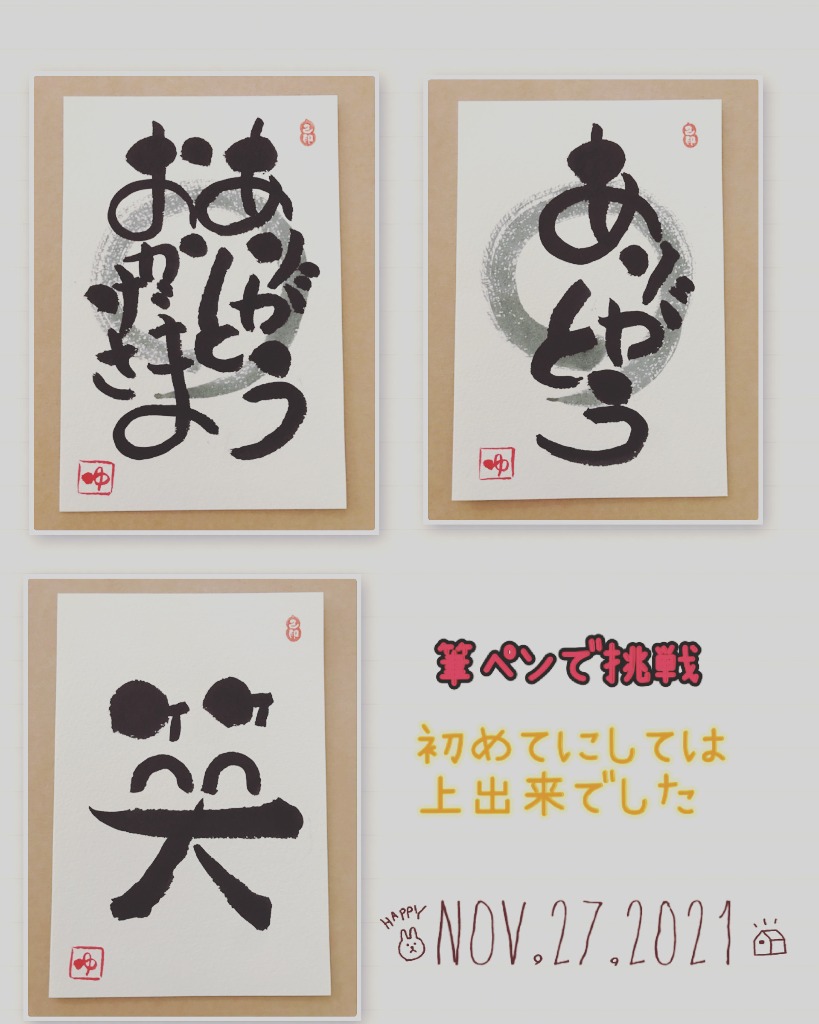 ありがとう
おかげさま
ゆ
ありがとう
ゆ
笑
ゆ
筆ペンで挑戦
初めてにしては
上出来でした
HAPPY
NOV.27.2021